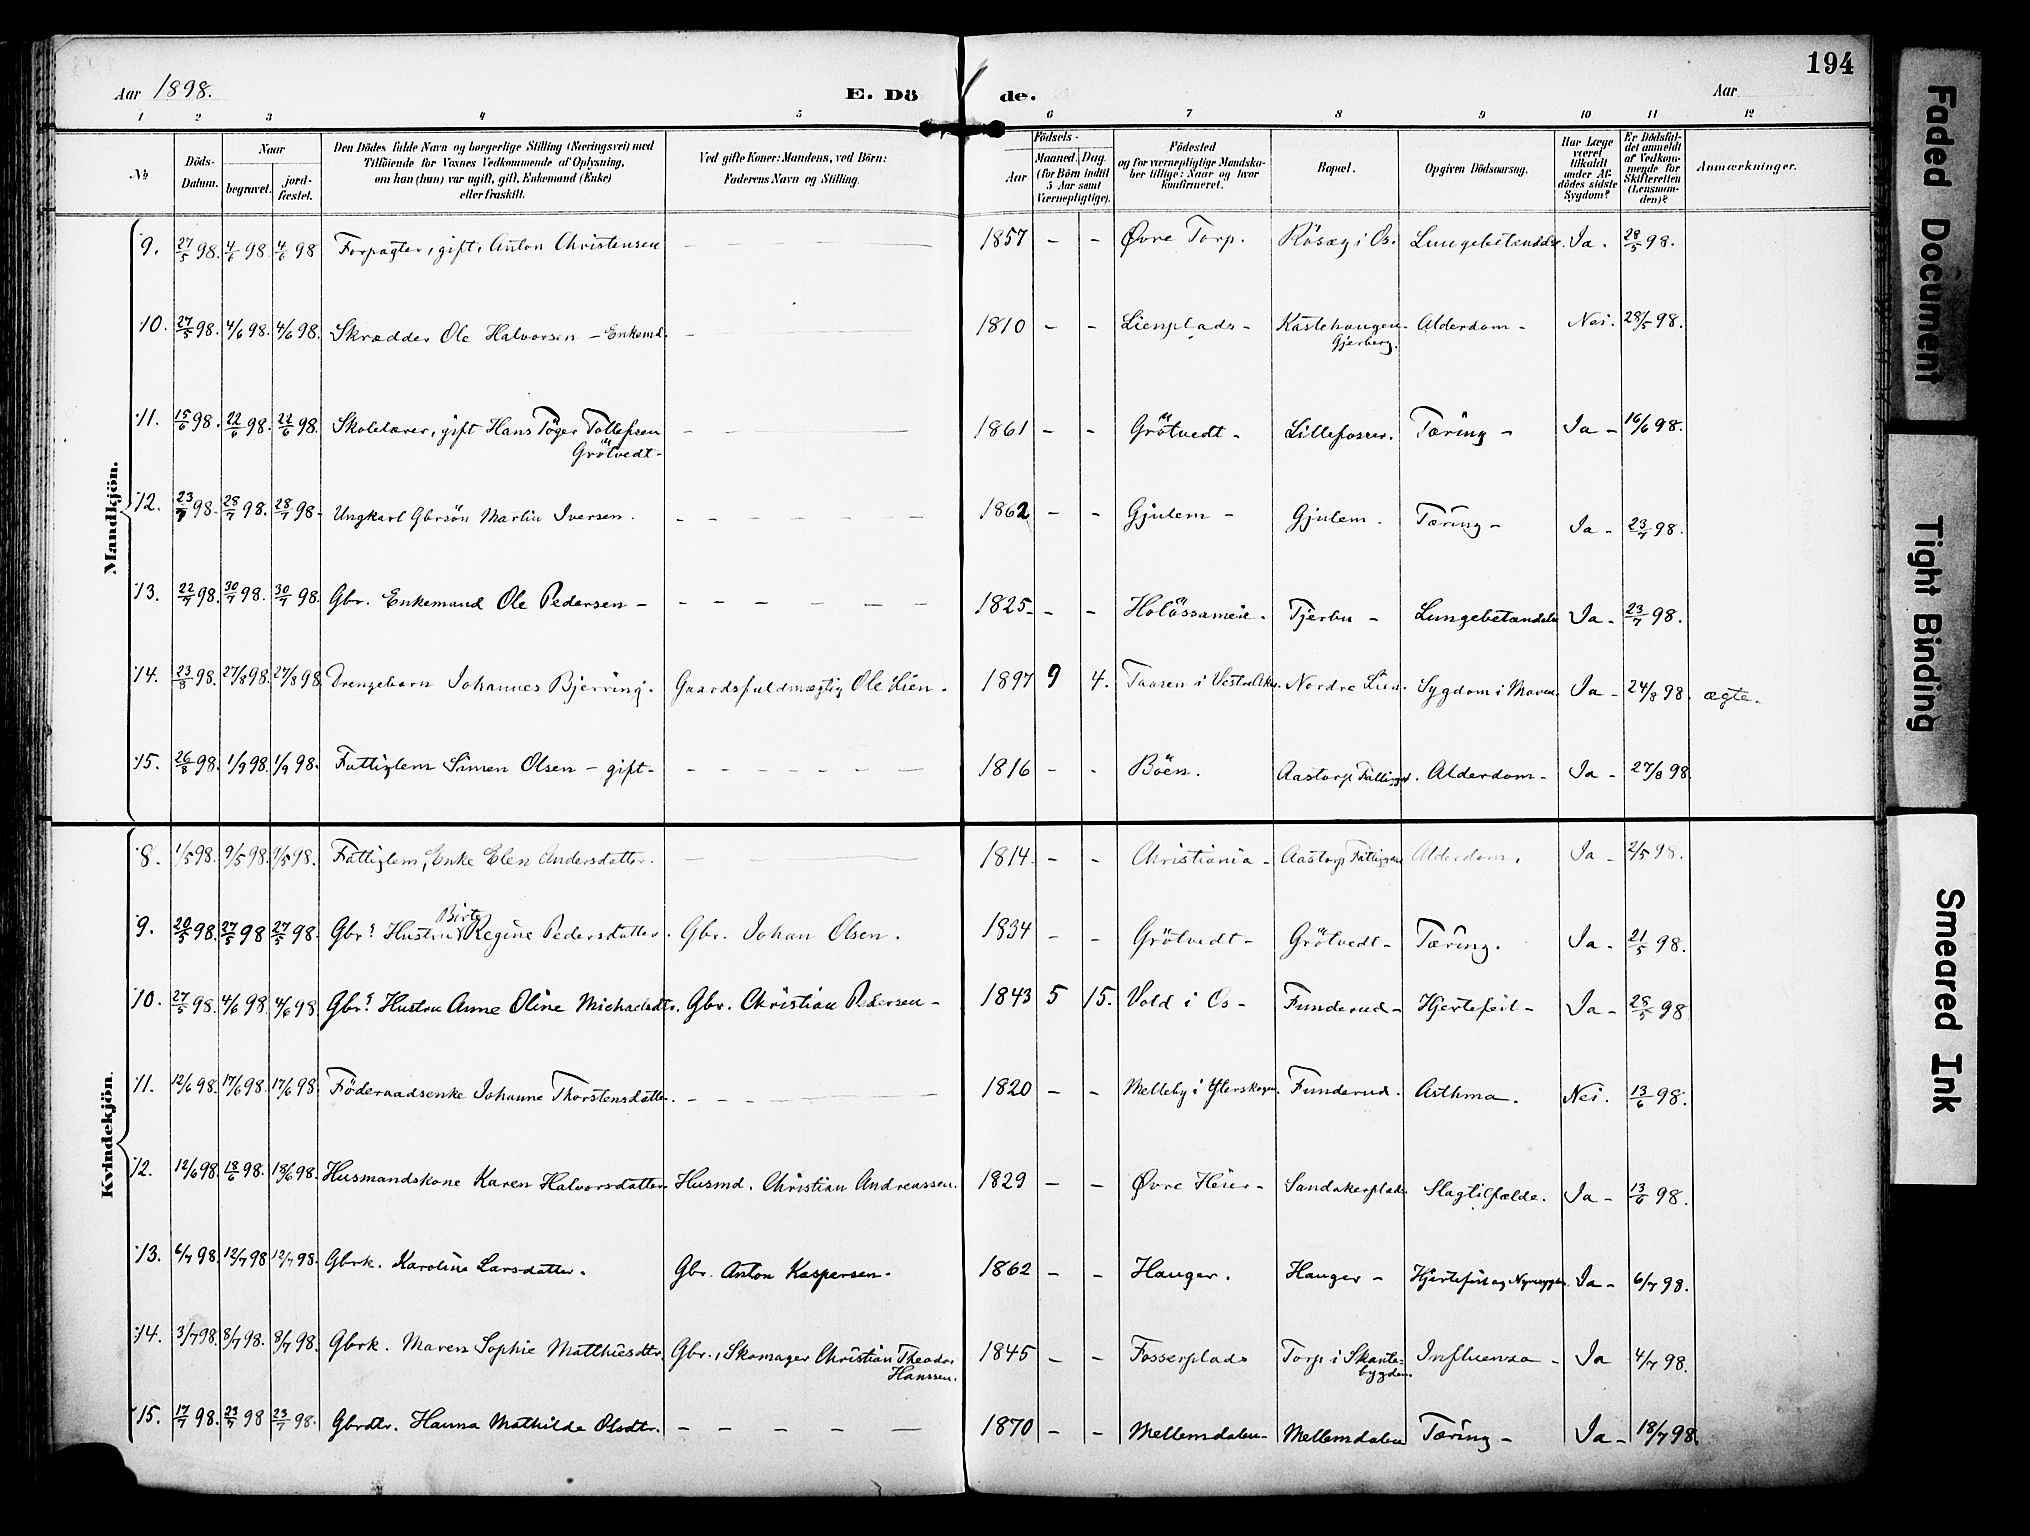 194
Aar 1898. E. Dö de. Aar
1 2 3 4 5 6 7 8 9 10 11 12
No
Döds-Datum.
Naar
begravet.
jord-fæstet.
Den Dödes fulde Navn og borgerlige Stilling (Næringsvei) med
Tilföiende for Voxnes Vedkommende af Oplysning,
om han (hun) var ugift, gift, Enkemand (Enke)
eller fraskilt.
Ved gifte Koner: Mandens, ved Börn:
Faderens Navn og Stilling.
Födsels-
Aar
Maaned. Dag.
(for Börn indtil
5 Aar samt
Værnepligtige).
Födested
og for værnepligtige Mandska-
ber tillige: Naar og hvor
konfirmeret.
Bopæl.
Opgiven Dödsaarsag.
Har Læge
været
tilkaldt
under Af-
dödes sidste
Sygdom?
Er Dödsfal-
det anmeldt
af Vedkom-
mende for
Skifteretten
(Lensman-
den)?
Anmærkninger.
Mandkjön.
9. 27/5 98. 4/6 98 4/6 98 Forpagter, gift, Anton Christensen — — — 1857 - - Øvre Torp. Röseg i Os. Lungebetændelse. Ja. 28/5 98.
10. 27/5 98. 4/6 98. 4/6 98. Skrædder Ole Halvorsen - Enkemd. - — — 1810 - - Lienplads - Kastehaugen. Alderdom - Nei. 28/5 98.
Gjerberg.
11. 15/6 98. 22/6 98. 22/6 98. Skolelærer, gift Hans Töger Tollefsen — — — 1861 - - Grötvedt - Lillefosser. Tæring - Ja - 16/6 98.
Grötvedt -
12. 23/7 98. 28/7 98. 28/7 98 - Ungkarl Gbrsön Martin Iversen. - - - - - - - 1862 - - Gjulem - Gjulem. Tæring - Ja - 23/7 98.
13. 22/7 98. 30/7 98. 30/7 98. Gbr. Enkemand Ole Pedersen - - - - - - - 1825 - - - Holössameie. Tjerbu - Lungebetændelse Ja - 23/7 98.
14. 23/8 98. 27/8 98. 27/8 98 Drengebarn Johannes Bjerring. Gaardsfuldmægtig Ole Lien. 1897 9 4. Taasen i Vestre Aker Nordre Lien. Sygdom i Maven. Ja - 24/8 98. ægte.
15. 26/8 98. 1/9 98. 1/9 98. Fattiglem Simen Olsen - gift - - - - - - - - 1816 - - Böen. Aastorp Fattiggd. Alderdom - Ja - 27/8 98
Kvindekjön.
8. 1/5 98. 9/5 98. 9/5 98. Fattiglem, Enke Elen Andersdatter. — — — 1814 - - Christiania - Aastorp Fattiggd Alderdom. Ja - 2/5 98.
Birte
9. 20/5 98. 27/5 98 27/5 98. Gbr's Hustru Regine Pedersdatter. Gbr. Johan Olsen. 1834 - - Grötvedt - Grötvedt - Tæring. Ja - 21/5 98.
10. 27/5 98. 4/6 98 4/6 98. Gbr's Hustru Anne Oline Michaelsdtr. Gbr. Christian Pedersen - 1843 5 15. Vold i Os - Funderud - Hjertefeil - Ja - 28/5 98
11. 12/6 98. 17/6 98. 17/6 98. Föderaadsenke Johanne Thorstensdatter. - - - — — — 1820 - - Melleby i Ytterskogen. Funderud. Asthma. Nei. 13/6 98.
12. 12/6 98. 18/6 98. 18/6 98. Husmandskone Karen Halvorsdatter Husmd. Christian Andreassen. 1829 - - Øvre Heier - Sandakerplads Slagtilfælde. Ja - 13/6 98.
13. 6/7 98. 12/7 98 12/7 98. Gbrk. Karoline Larsdatter. Gbr. Anton Kaspersen. 1862 - - Hauger. Hauger - Hjertefeil og Nyresygdom. Ja - 6/7 98.
14. 3/7 98. 8/7 98. 8/7 98. Gbrk. Maren Sophie Matthiesdtr. Gbr., Skomager Christian Theodor 1845 - - Fosserplads Torp i Skante- Influenza - Ja 4/7 98.
Hanssen. bygden.
15. 17/7 98. 23/7 98 23/7 98. Gbrdtr. Hanna Mathilde Olsdtr. - - - - - 1870 - - Mellemdalen - Mellemdalen Tæring - Ja - 18/7 98.
Faded Document
Tight Binding
Smeared Ink